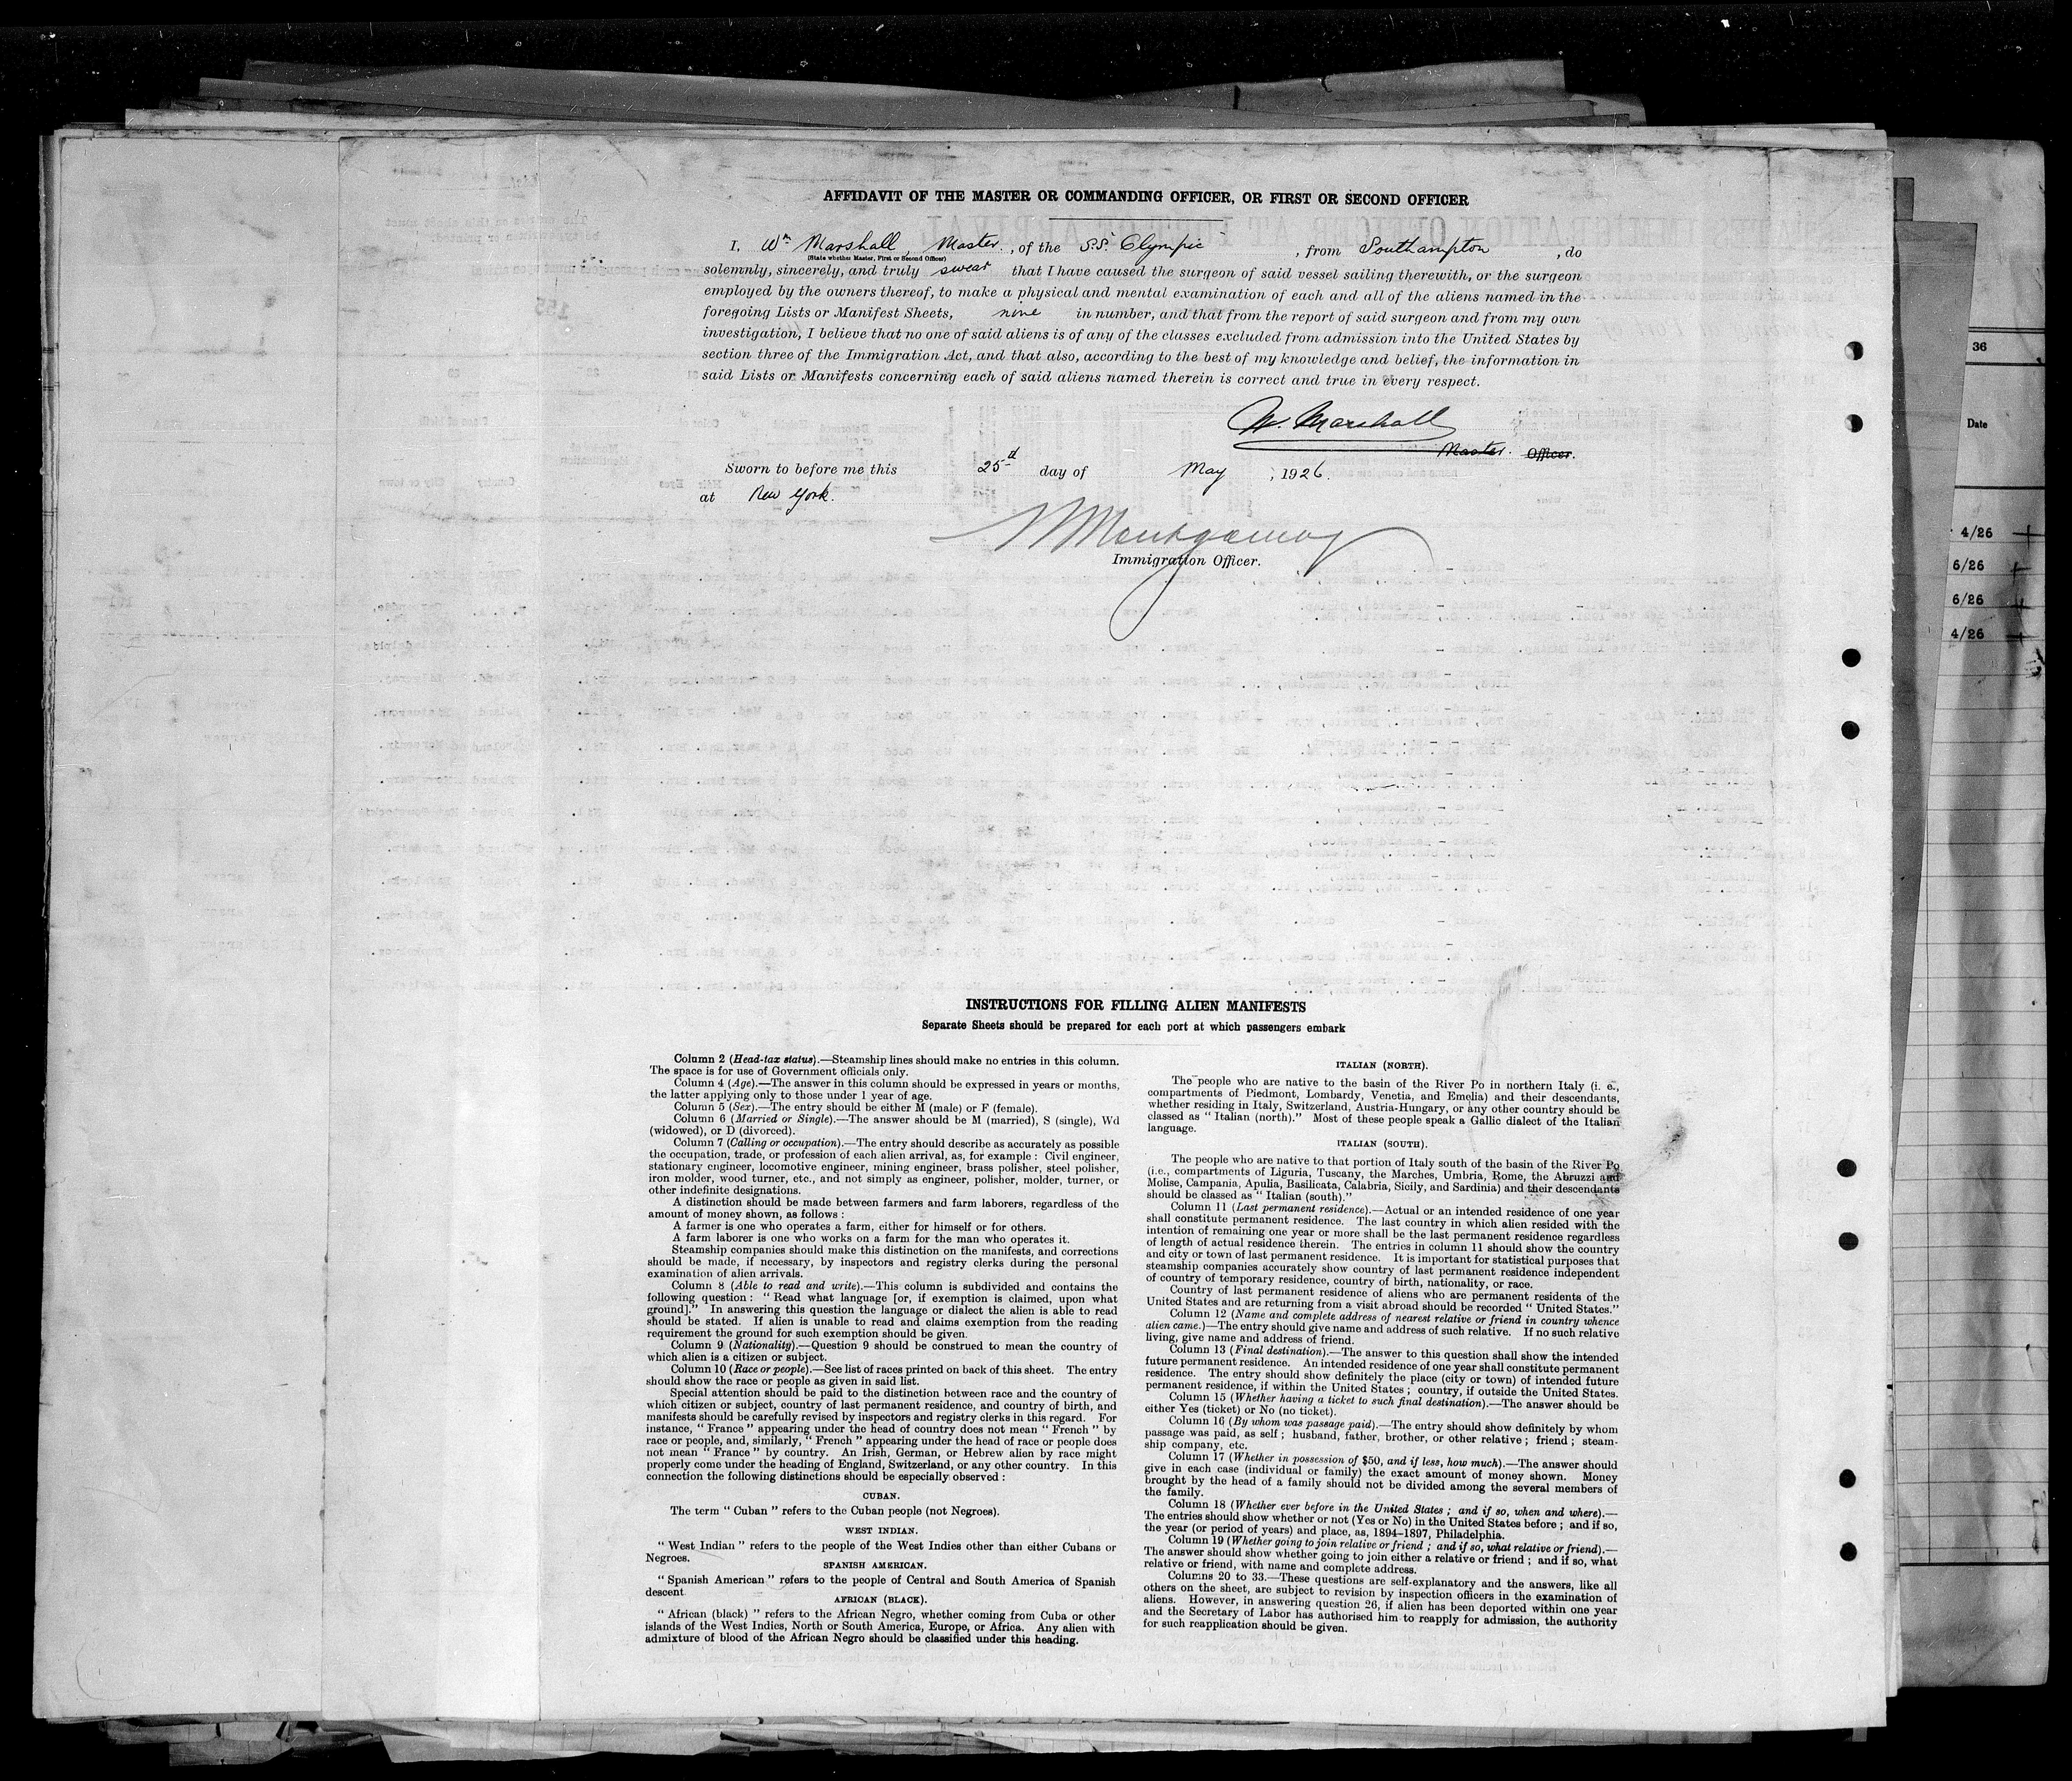 AFFIDAVIT OF THE MASTER OR COMMANDING OFFICER, OR FIRST OR SECOND OFFICER
I, Wm Marshall, Master, of the S.S. "Olympic", from Southampton, do
(State whether Master, First or Second Officer)
solemnly, sincerely, and truly swear that I have caused the surgeon of said vessel sailing therewith, or the surgeon
employed by the owners thereof, to make a physical and mental examination of each and all of the aliens named in the
foregoing Lists or Manifest Sheets, nine in number, and that from the report of said surgeon and from my own
investigation, I believe that no one of said aliens is of any of the classes excluded from admission into the United States by
section three of the Immigration Act, and that also, according to the best of my knowledge and belief, the information in
said Lists or Manifests concerning each of said aliens named therein is correct and true in every respect.
W. Marshall
Master. Officer.
Sworn to before me this 25 day of May, 1926.
at New York.
Montgomery
Immigration Officer.
36
Date
4/26
6/26
6/26
4/26
155
INSTRUCTIONS FOR FILLING ALIEN MANIFESTS
Separate Sheets should be prepared for each port at which passengers embark
Column 2 (Head-tax status).—Steamship lines should make no entries in this column.
The space is for use of Government officials only.
Column 4 (Age).—The answer in this column should be expressed in years or months,
the latter applying only to those under 1 year of age.
Column 5 (Sex).—The entry should be either M (male) or F (female).
Column 6 (Married or Single).—The answer should be M (married), S (single), Wd
(widowed), or D (divorced).
Column 7 (Calling or occupation).—The entry should describe as accurately as possible
the occupation, trade, or profession of each alien arrival, as, for example : Civil engineer,
stationary engineer, locomotive engineer, mining engineer, brass polisher, steel polisher,
iron molder, wood turner, etc., and not simply as engineer, polisher, molder, turner, or
other indefinite designations.
A distinction should be made between farmers and farm laborers, regardless of the
amount of money shown, as follows :
A farmer is one who operates a farm, either for himself or for others.
A farm laborer is one who works on a farm for the man who operates it.
Steamship companies should make this distinction on the manifests, and corrections
should be made, if necessary, by inspectors and registry clerks during the personal
examination of alien arrivals.
Column 8 (Able to read and write).—This column is subdivided and contains the
following question : " Read what language [or, if exemption is claimed, upon what
ground]." In answering this question the language or dialect the alien is able to read
should be stated. If alien is unable to read and claims exemption from the reading
requirement the ground for such exemption should be given.
Column 9 (Nationality).—Question 9 should be construed to mean the country of
which alien is a citizen or subject.
Column 10 (Race or people).—See list of races printed on back of this sheet. The entry
should show the race or people as given in said list.
Special attention should be paid to the distinction between race and the country of
which citizen or subject, country of last permanent residence, and country of birth, and
manifests should be carefully revised by inspectors and registry clerks in this regard. For
instance, " France " appearing under the head of country does not mean " French " by
race or people, and, similarly, " French " appearing under the head of race or people does
not mean " France " by country. An Irish, German, or Hebrew alien by race might
properly come under the heading of England, Switzerland, or any other country. In this
connection the following distinctions should be especially observed :
CUBAN.
The term " Cuban " refers to the Cuban people (not Negroes).
WEST INDIAN.
" West Indian " refers to the people of the West Indies other than either Cubans or
Negroes.
SPANISH AMERICAN.
" Spanish American " refers to the people of Central and South America of Spanish
descent
AFRICAN (BLACK).
" African (black) " refers to the African Negro, whether coming from Cuba or other
islands of the West Indies, North or South America, Europe, or Africa. Any alien with
admixture of blood of the African Negro should be classified under this heading.
ITALIAN (NORTH).
The people who are native to the basin of the River Po in northern Italy (i. e.,
compartments of Piedmont, Lombardy, Venetia, and Emelia) and their descendants,
whether residing in Italy, Switzerland, Austria-Hungary, or any other country should be
classed as " Italian (north)." Most of these people speak a Gallic dialect of the Italian
language.
ITALIAN (SOUTH).
The people who are native to that portion of Italy south of the basin of the River Po
(i.e., compartments of Liguria, Tuscany, the Marches, Umbria, Rome, the Abruzzi and
Molise, Campania, Apulia, Basilicata, Calabria, Sicily, and Sardinia) and their descendants
should be classed as " Italian (south)."
Column 11 (Last permanent residence).—Actual or an intended residence of one year
shall constitute permanent residence. The last country in which alien resided with the
intention of remaining one year or more shall be the last permanent residence regardless
of length of actual residence therein. The entries in column 11 should show the country
and city or town of last permanent residence. It is important for statistical purposes that
steamship companies accurately show country of last permanent residence independent
of country of temporary residence, country of birth, nationality, or race.
Country of last permanent residence of aliens who are permanent residents of the
United States and are returning from a visit abroad should be recorded " United States."
Column 12 (Name and complete address of nearest relative or friend in country whence
alien came.)—The entry should give name and address of such relative. If no such relative
living, give name and address of friend.
Column 13 (Final destination).—The answer to this question shall show the intended
future permanent residence. An intended residence of one year shall constitute permanent
residence. The entry should show definitely the place (city or town) of intended future
permanent residence, if within the United States ; country, if outside the United States.
Column 15 (Whether having a ticket to such final destination).—The answer should be
either Yes (ticket) or No (no ticket).
Column 16 (By whom was passage paid).—The entry should show definitely by whom
passage was paid, as self ; husband, father, brother, or other relative ; friend ; steam-
ship company, etc.
Column 17 (Whether in possession of $50, and if less, how much).—The answer should
give in each case (individual or family) the exact amount of money shown. Money
brought by the head of a family should not be divided among the several members of
the family.
Column 18 (Whether ever before in the United States ; and if so, when and where).—
The entries should show whether or not (Yes or No) in the United States before ; and if so,
the year (or period of years) and place, as, 1894–1897, Philadelphia.
Column 19 (Whether going to join relative or friend ; and if so, what relative or friend).—
The answer should show whether going to join either a relative or friend ; and if so, what
relative or friend, with name and complete address.
Columns 20 to 33.—These questions are self-explanatory and the answers, like all
others on the sheet, are subject to revision by inspection officers in the examination of
aliens. However, in answering question 26, if alien has been deported within one year
and the Secretary of Labor has authorised him to reapply for admission, the authority
for such reapplication should be given.